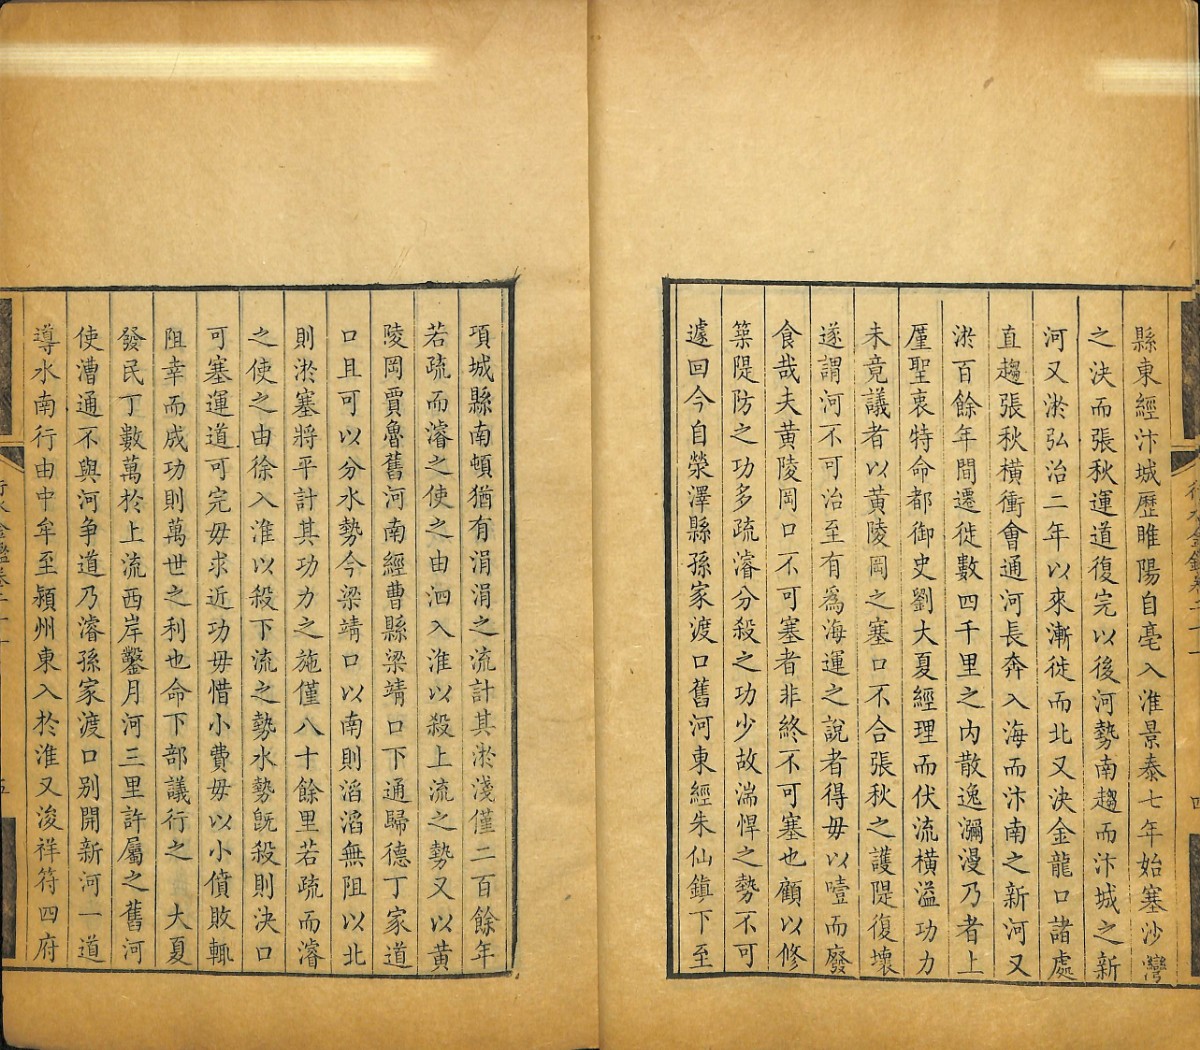 縣東經汴城歷睢陽自亳入淮景泰七年始塞沙灣
之決而張秋運道復完以後河勢南趨而汴城之新
河又淤弘治二年以來漸徙而北又決金龍口諸處
直趨張秋橫衝會通河長奔入海而汴南之新河又
淤百餘年間遷徙數四千里之內散逸瀰漫乃者上
厪聖衷特命都御史劉大夏經理而伏流橫溢功力
未竟議者以黃陵岡之塞口不合張秋之護隄復壞
遂謂河不可治至有為海運之說者得毋以噎而廢
食哉夫黃陵岡口不可塞者非終不可塞也顧以修
築隄防之功多疏濬分殺之功少故湍悍之勢不可
遽回今自滎澤縣孫家渡口舊河東經朱仙鎮下至
四
項城縣南頓猶有涓涓之流計其淤淺僅二百餘年
若疏而濬之使之由泗入淮以殺上流之勢又以黃
陵岡賈魯舊河南經曹縣梁靖口下通歸德丁家道
口且可以分水勢今梁靖口以南則滔滔無阻以北
則淤塞將平計其功力之施僅八十餘里若疏而濬
之使之由徐入淮以殺下流之勢水勢旣殺則決口
可塞運道可完毋求近功毋惜小費毋以小僨敗輒
阻幸而成功則萬世之利也命下部議行之 大夏
發民丁數萬於上流西岸鑿月河三里許屬之舊河
使漕通不與河爭道乃濬孫家渡口別開新河一道
導水南行由中牟至潁州東入於淮又浚祥符四府
行水金鑑卷二十
五